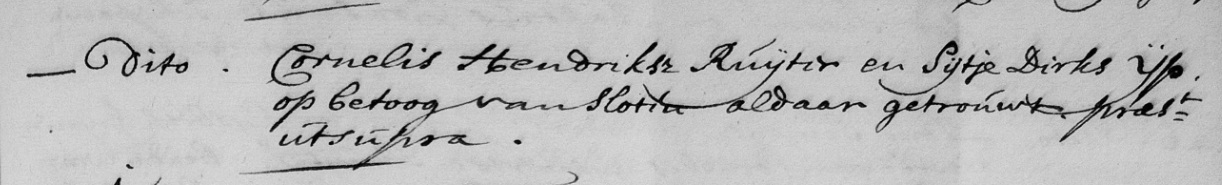 — Dito . Cornelis Hendriksz Ruÿter en Sijtje Dirks ÿsp.
op betoog van Slotia aldaar getrouwt præst=
ut supra .